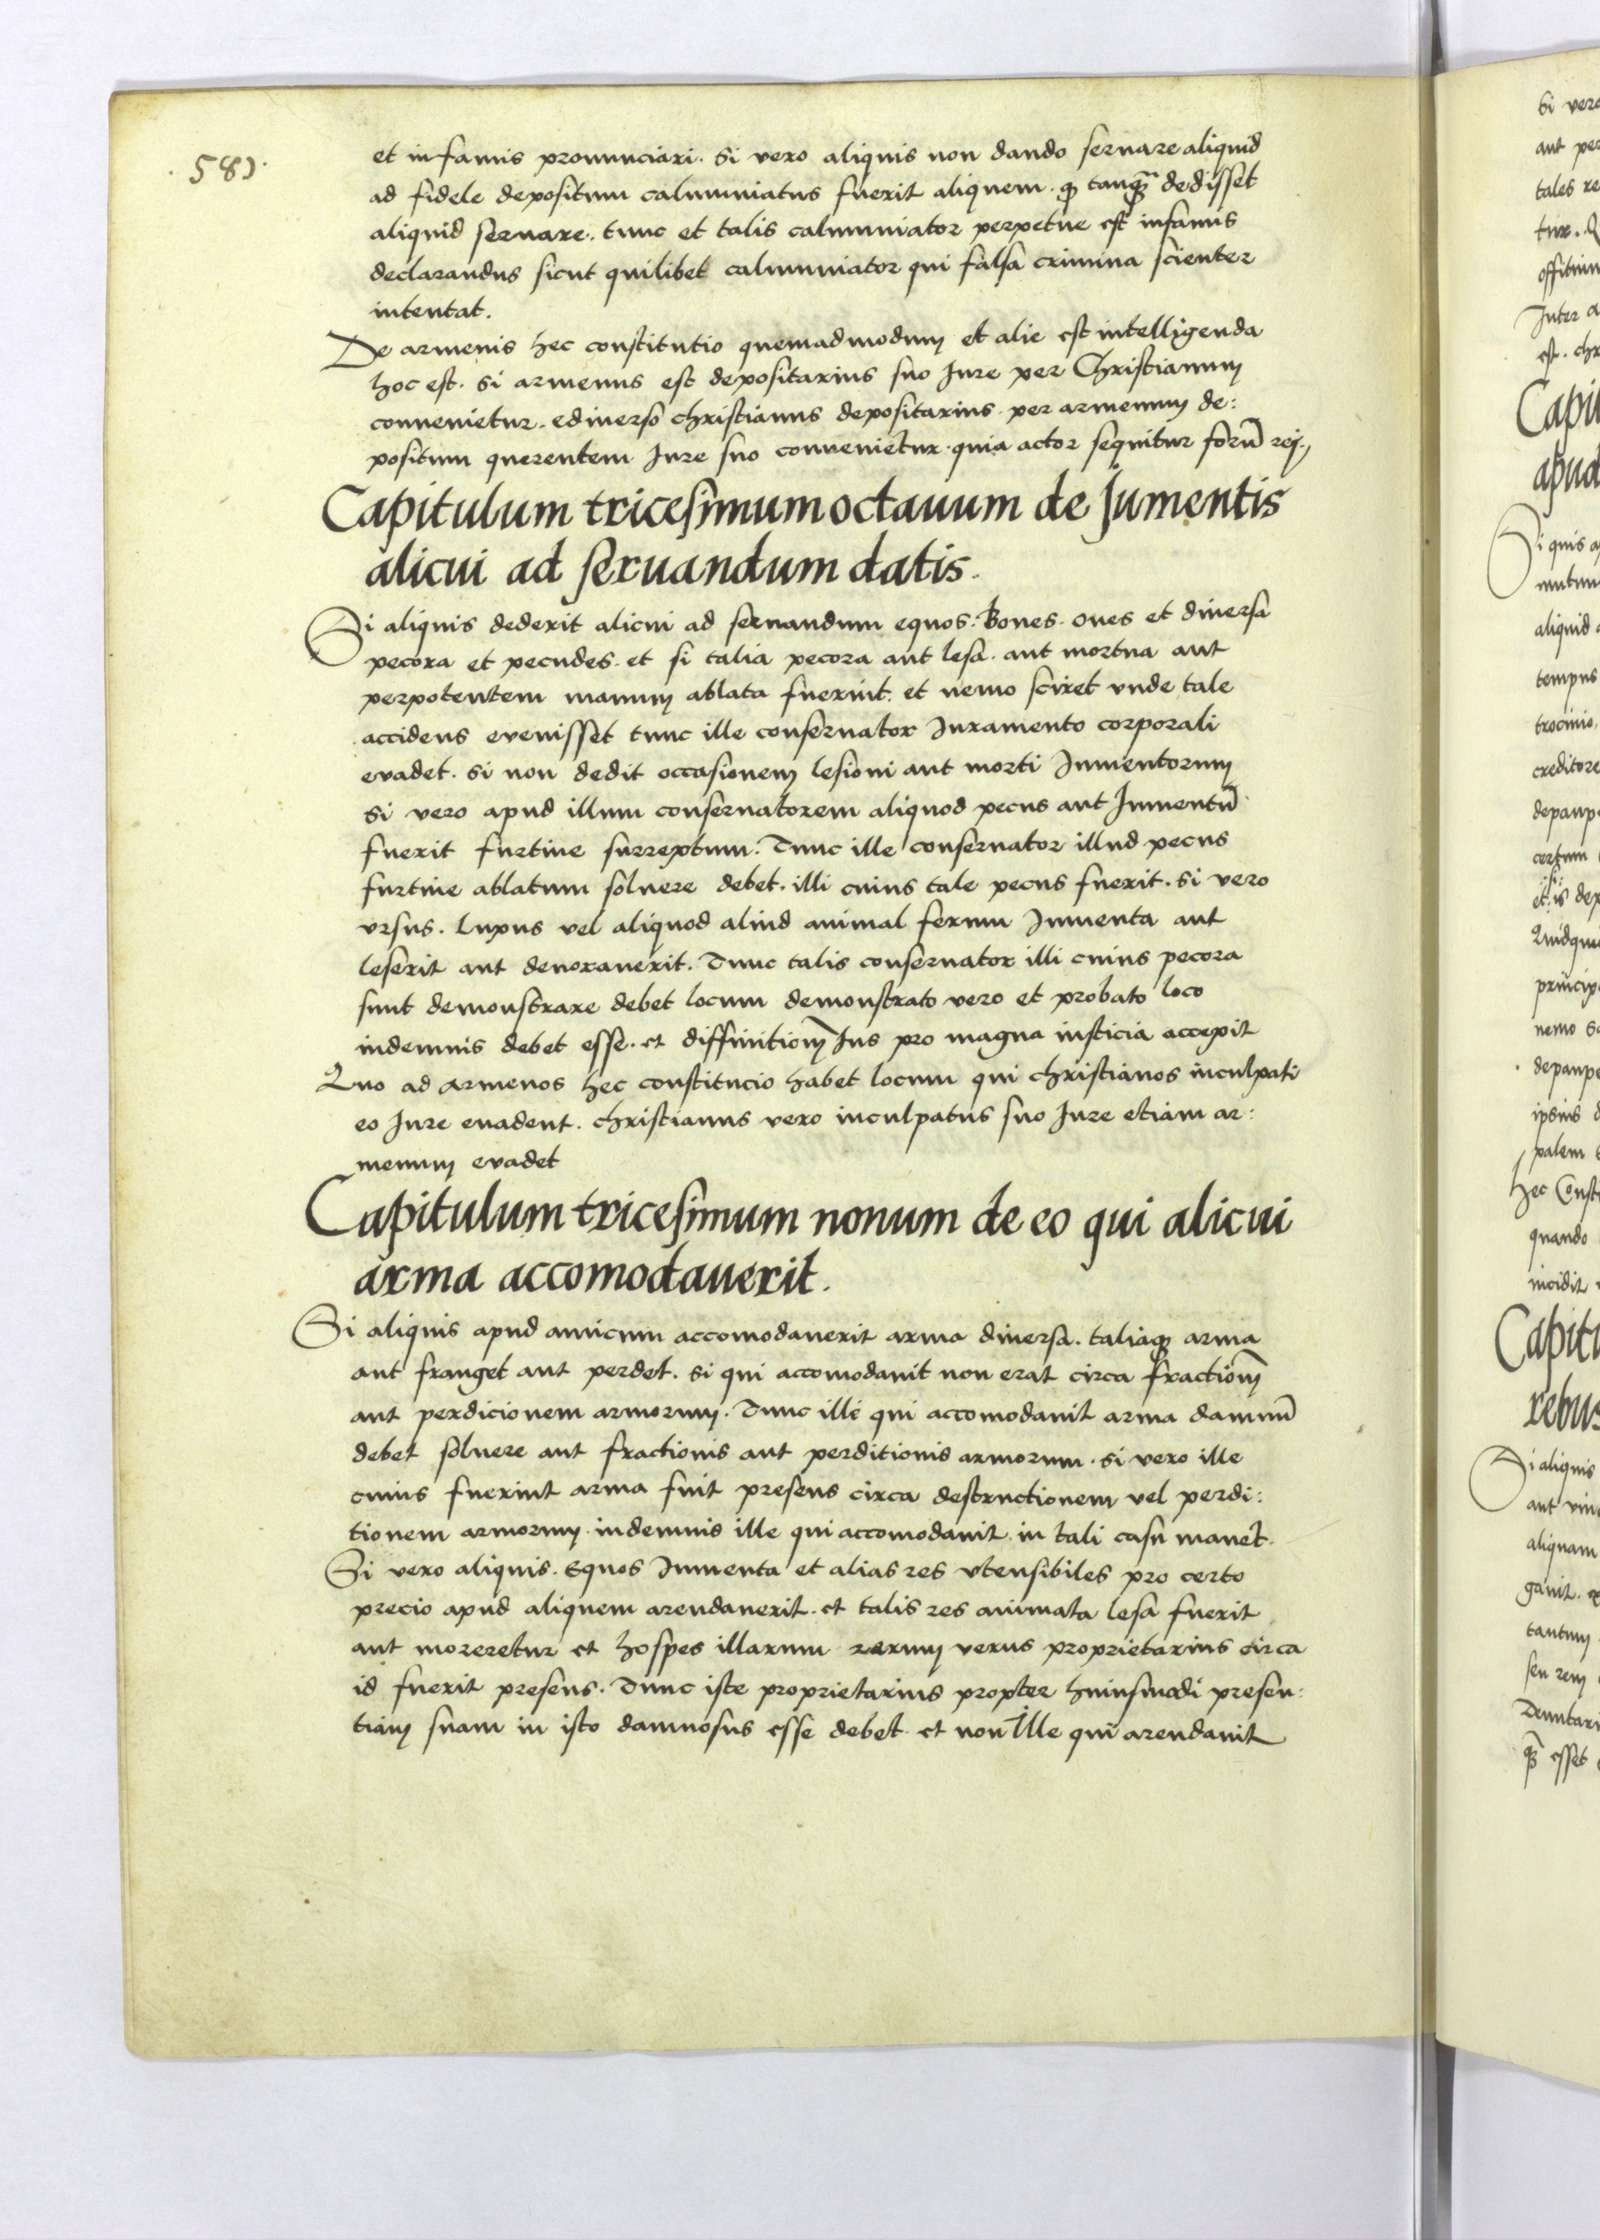 581.
et infamis pronunciari. si vero aliquis non dando seruare aliquid
ad fidele depositum calumniatus fuerit aliquem. ꝙ tanꝙ̃ dedisset
aliquid seruare. tunc et talis calumniator perpetue est infamis
declarandus sicut quilibet calumniator qui falsa crimina scienter
intentat.
De armenis hec constitutio quemadmodum et alie est intelligenda
hoc est. si armenus est depositarius suo Iure per Christianum
conuenietur. ediuerso christianus depositarius per armenum de:
positum querentem Iure suo conuenietur. quia actor sequitur forū rej.
Capitulum tricesimum octauum de Jumentis
alicui ad seruandum datis.
Si aliquis dederit alicui ad seruandum equos. Boues. oues et diuersa
pecora et pecudes. et si talia pecora aut lesa. aut mortua aut
perpotentem manum ablata fuerint. et nemo sciret vnde tale
accidens evenisset tunc ille conseruator Iuramento corporali
evadet. si non dedit occasionem lesioni aut morti Iumentorum
si vero apud illum conseruatorem aliquod pecus aut Iumentū
fuerit furtiue surreptum. Tunc ille conseruator illud pecus
furtiue ablatum soluere debet. illi cuius tale pecus fuerit. si vero
vrsus. Lupus vel aliquod aliud animal ferum Iumenta aut
leserit aut deuorauerit. Tunc talis conseruator illi cuius pecora
sunt demonstrare debet locum demonstrato vero et probato loco
indemnis debet esse. et diffinitionẽ Ius pro magna iusticia accepit
Quo ad armenos hec constitucio habet locum qui christianos inculpati
eo Iure euadent. christianus vero inculpatus suo Iure etiam ar:
menum evadet
Capitulum tricesimum nonum de eo qui alicui
arma accomodauerit.
Si aliquis apud amicum accomodauerit arma diuersa. taliaqꝫ arma
aut franget aut perdet. si qui accomodauit non erat circa fractionẽ
aut perdicionem armorum. Tunc ille qui accomodauit arma damnū
debet soluere aut fractionis aut perditionis armorum. si vero ille
cuius fuerint arma fuit presens circa destructionem vel perdi:
tionem armorum. indemnis ille qui accomodauit in tali casu manet.
Si vero aliquis. Equos Iumenta et alias res vtensibiles pro certo
precio apud aliquem arendauerit. et talis res animata lesa fuerit
aut moreretur et hospes illarum rerum verus proprietarius circa
id fuerit presens. Tunc iste proprietarius propter huiusmodi presen:
tiam suam in isto damnosus esse debet et non Ille qui arendauit